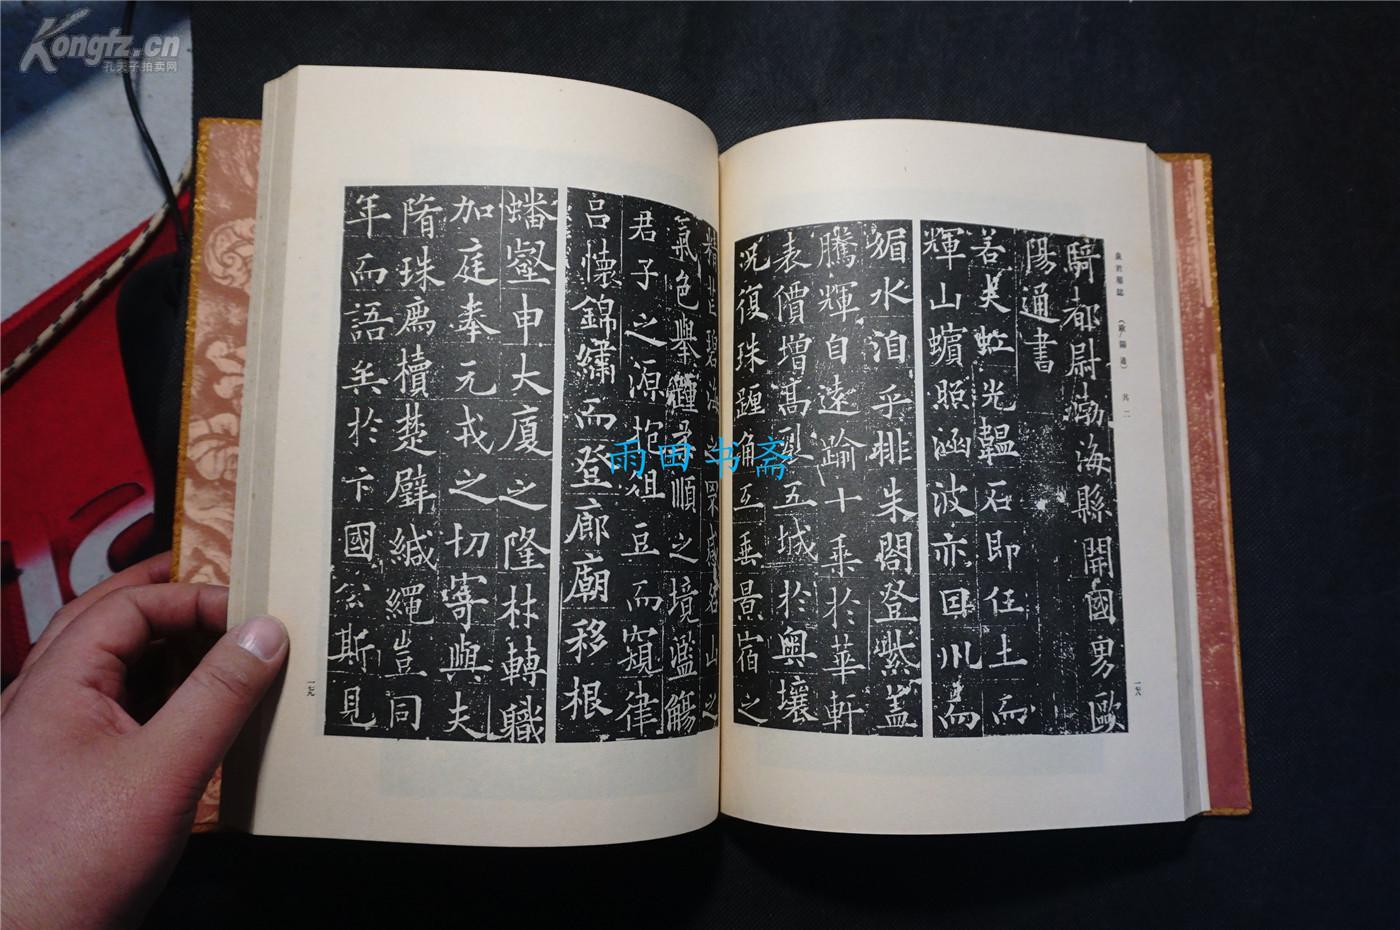 Kongfz.cn
孔夫子拍卖网
泉男墓誌 (歐陽通) 其二
騎都尉渤海縣開國男歐
陽通書
若夫虹光韞石即任土而
輝山蠙照涵波亦因川而
媚水洎乎排朱閣登紫蓋
騰輝自遠踰十乘於華軒
表價增高裂五城於奧壤
況復珠躔角互垂景宿之
精芒碧海之罘感名山之
氣色舉踵柔順之境濫觴
君子之源抱俎豆而窺律
呂懷錦繡而登廊廟移根
蟠壑申大廈之隆材轉職
加庭奉元戎之切寄與夫
隋珠薦櫝楚璧緘繩豈同
年而語矣於卞國公斯見
雨田书斋
一六八
一六九